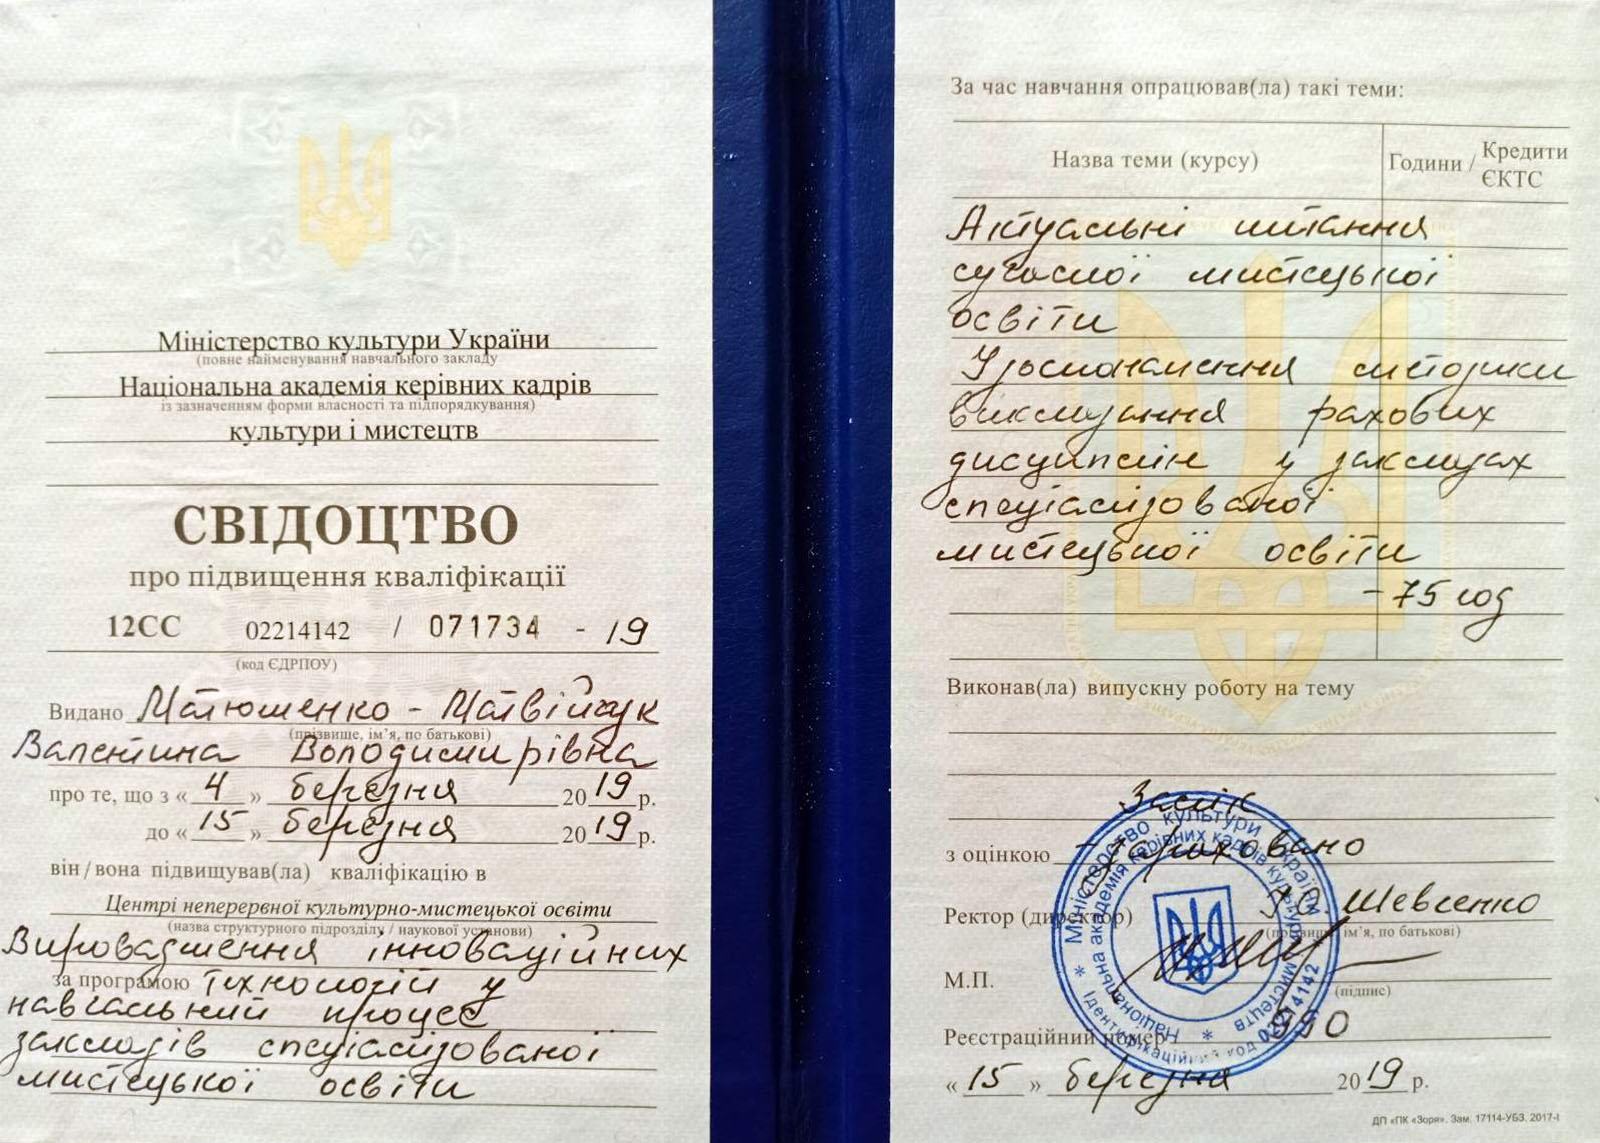 Міністерство культури України
(повне найменування навчального закладу
Національна академія керівних кадрів
із зазначенням форми власності та підпорядкування)
культури і мистецтв
СВІДОЦТВО
про підвищення кваліфікації
12СС 02214142 / 071734 - 19
(код ЄДРПОУ)
Видано Матюшенко - Матвійчук
(прізвище, ім'я, по батькові)
Валентина Володимирівна
про те, що з « 4 » березня 2019 р.
до « 15 » березня 2019 р.
він/вона підвищував(ла) кваліфікацію в
Центрі неперервної культурно-мистецької освіти
(назва структурного підрозділу / наукової установи)
Впровадження інноваційних
за програмою технологій у
навчальний процес
закладів спеціалізованої
мистецької освіти
За час навчання опрацював(ла) такі теми:
Назва теми (курсу)
Години / Кредити ЄКТС
Актуальні питання
сучасної мистецької
освіти
Удосконалення методики
викладання фахових
дисциплін у закладах
спеціалізованої
мистецької освіти
- 75 год
Виконав(ла) випускну роботу на тему
Залік
з оцінкою - зараховано
Ректор (директор) Шевченко
(прізвище, ім'я, по батькові)
М.П.
(підпис)
Реєстраційний номер 950
« 15 » березня 2019 р.
Міністерство культури України
Національна академія керівних кадрів культури і мистецтв
Ідентифікаційний код 02214142
ДП «ПК «Зоря». Зам. 17114-УБЗ. 2017-І